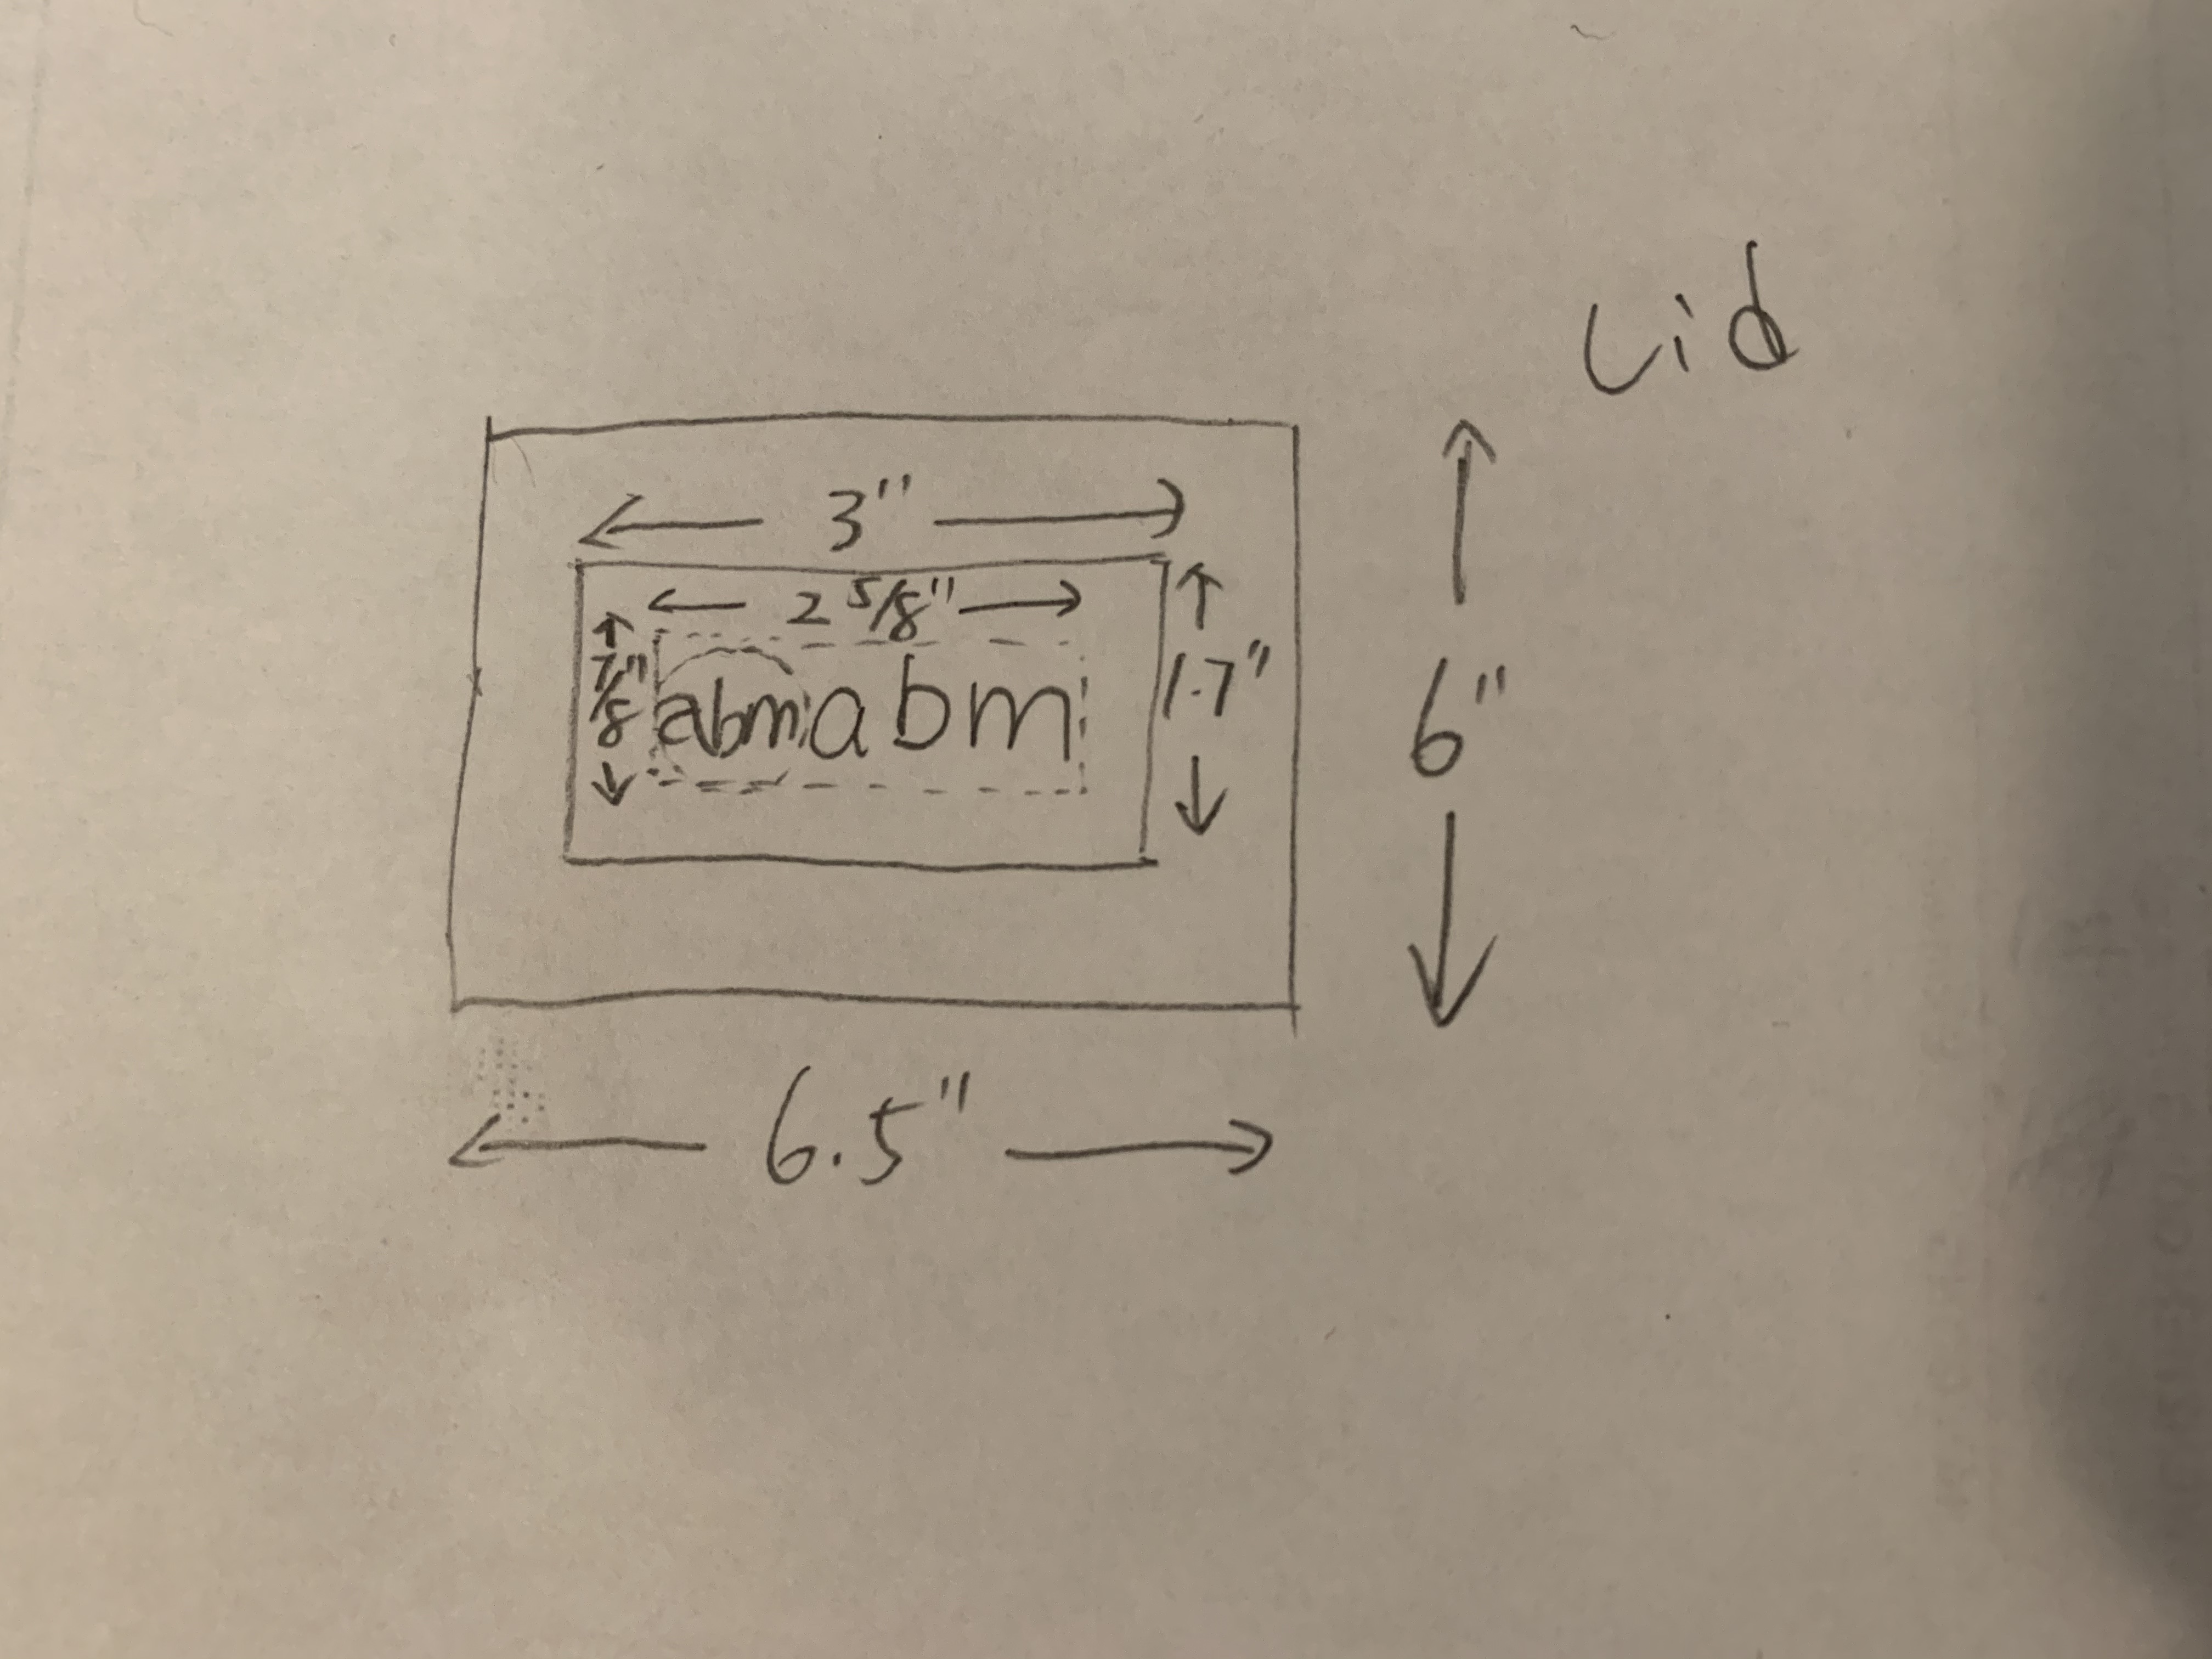 Lid
3"
2 5/8"
7/8"
abm abm
1.7"
6"
6.5"